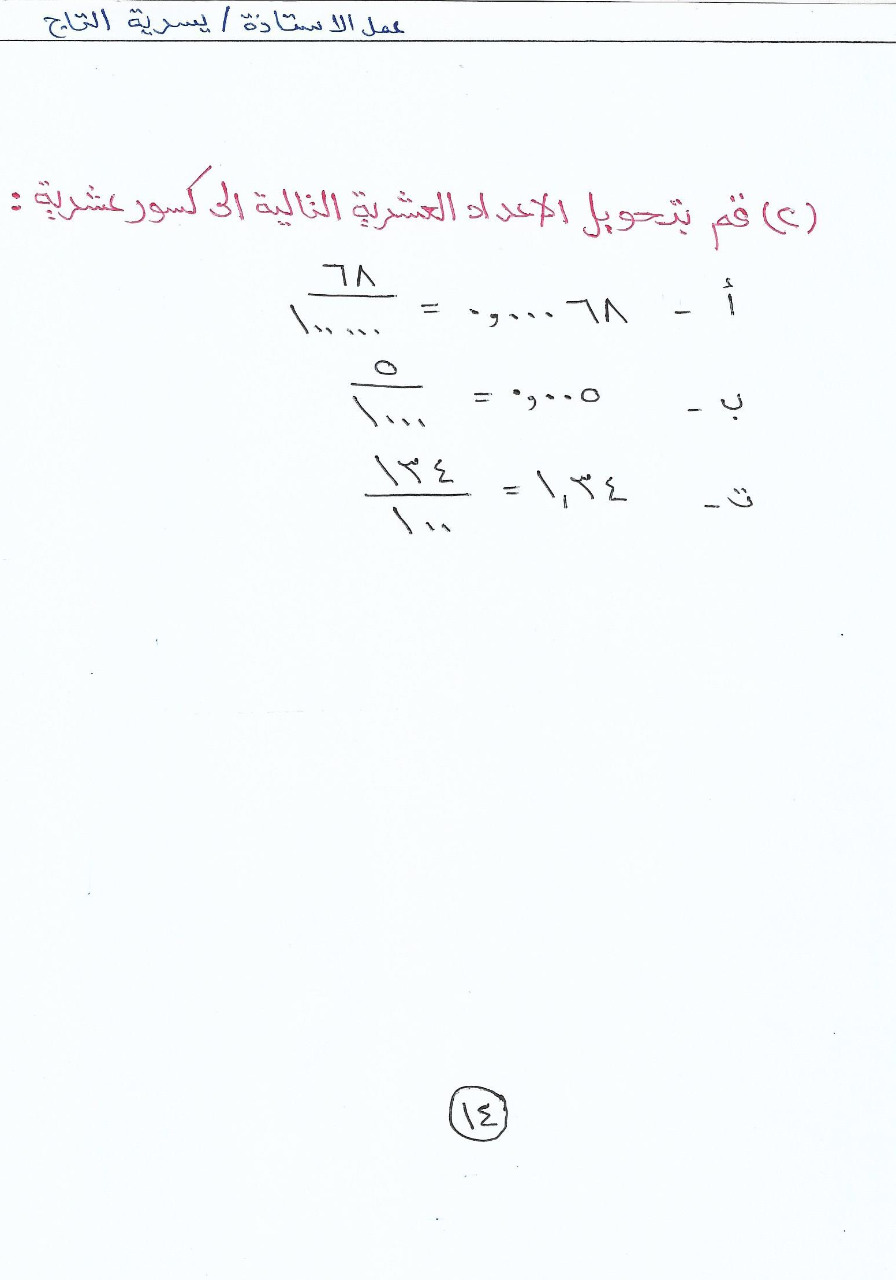 عمل الاستاذة / يسرية التاج
(٢) قم بتحويل الاعداد العشرية التالية الى كسور عشرية :
أ - ٠,٠٠٠٦٨ = ٦٨/١٠٠٠٠٠
ب - ٠,٠٠٥ = ٥/١٠٠٠
ت - ١,٣٤ = ١٣٤/١٠٠
١٤